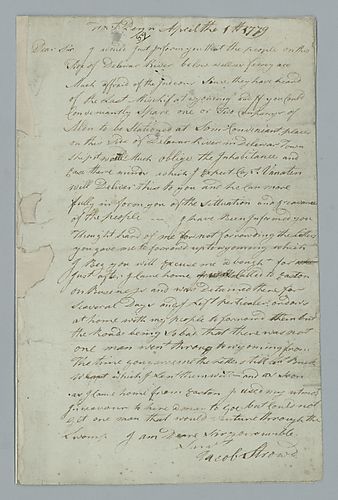 Fort Penn April the 1th 1779
Dear Sir I would Just Inform you that the people on this
Side of Delawar River below wells's ferrey are
Much affraid of the Indians Since they have heard
of the Last Mischief at wyoming and if you Could
Conveniantly Spare one or Two Companys of
Men to be Stationed at Some Conveniant place
on this Side of Delawar River in Delawar Town
Ship it would Much oblige the Inhabitance and
Ease there minds which I Expect Capt Vanatten
will Deliver this to you and he Can more
fully inform you of the Situation and greavance
of the people — I have Been Informed you
Thought hard of me for not forwarding the letters
you gave me to forward up to wyoming which
I Beg you will Excuse me a bought for
Just after I Came home I was Called to Easton
on Business and was Detained there for
Several Days and I Left perticular orders
at home with my people to forward them but
the Roads being So bad that there was not
one man went through to wyoming from
the time you gave me the letters till Capt Bush
went which I Sent them with — and as Soon
as I Came home from Easton I used my utmost
Endeavour to hire a man to Goe but Could not
Get one man that would Venture through the
Swamp I am Dear Sir your umble
Servt
Jacob Stroud